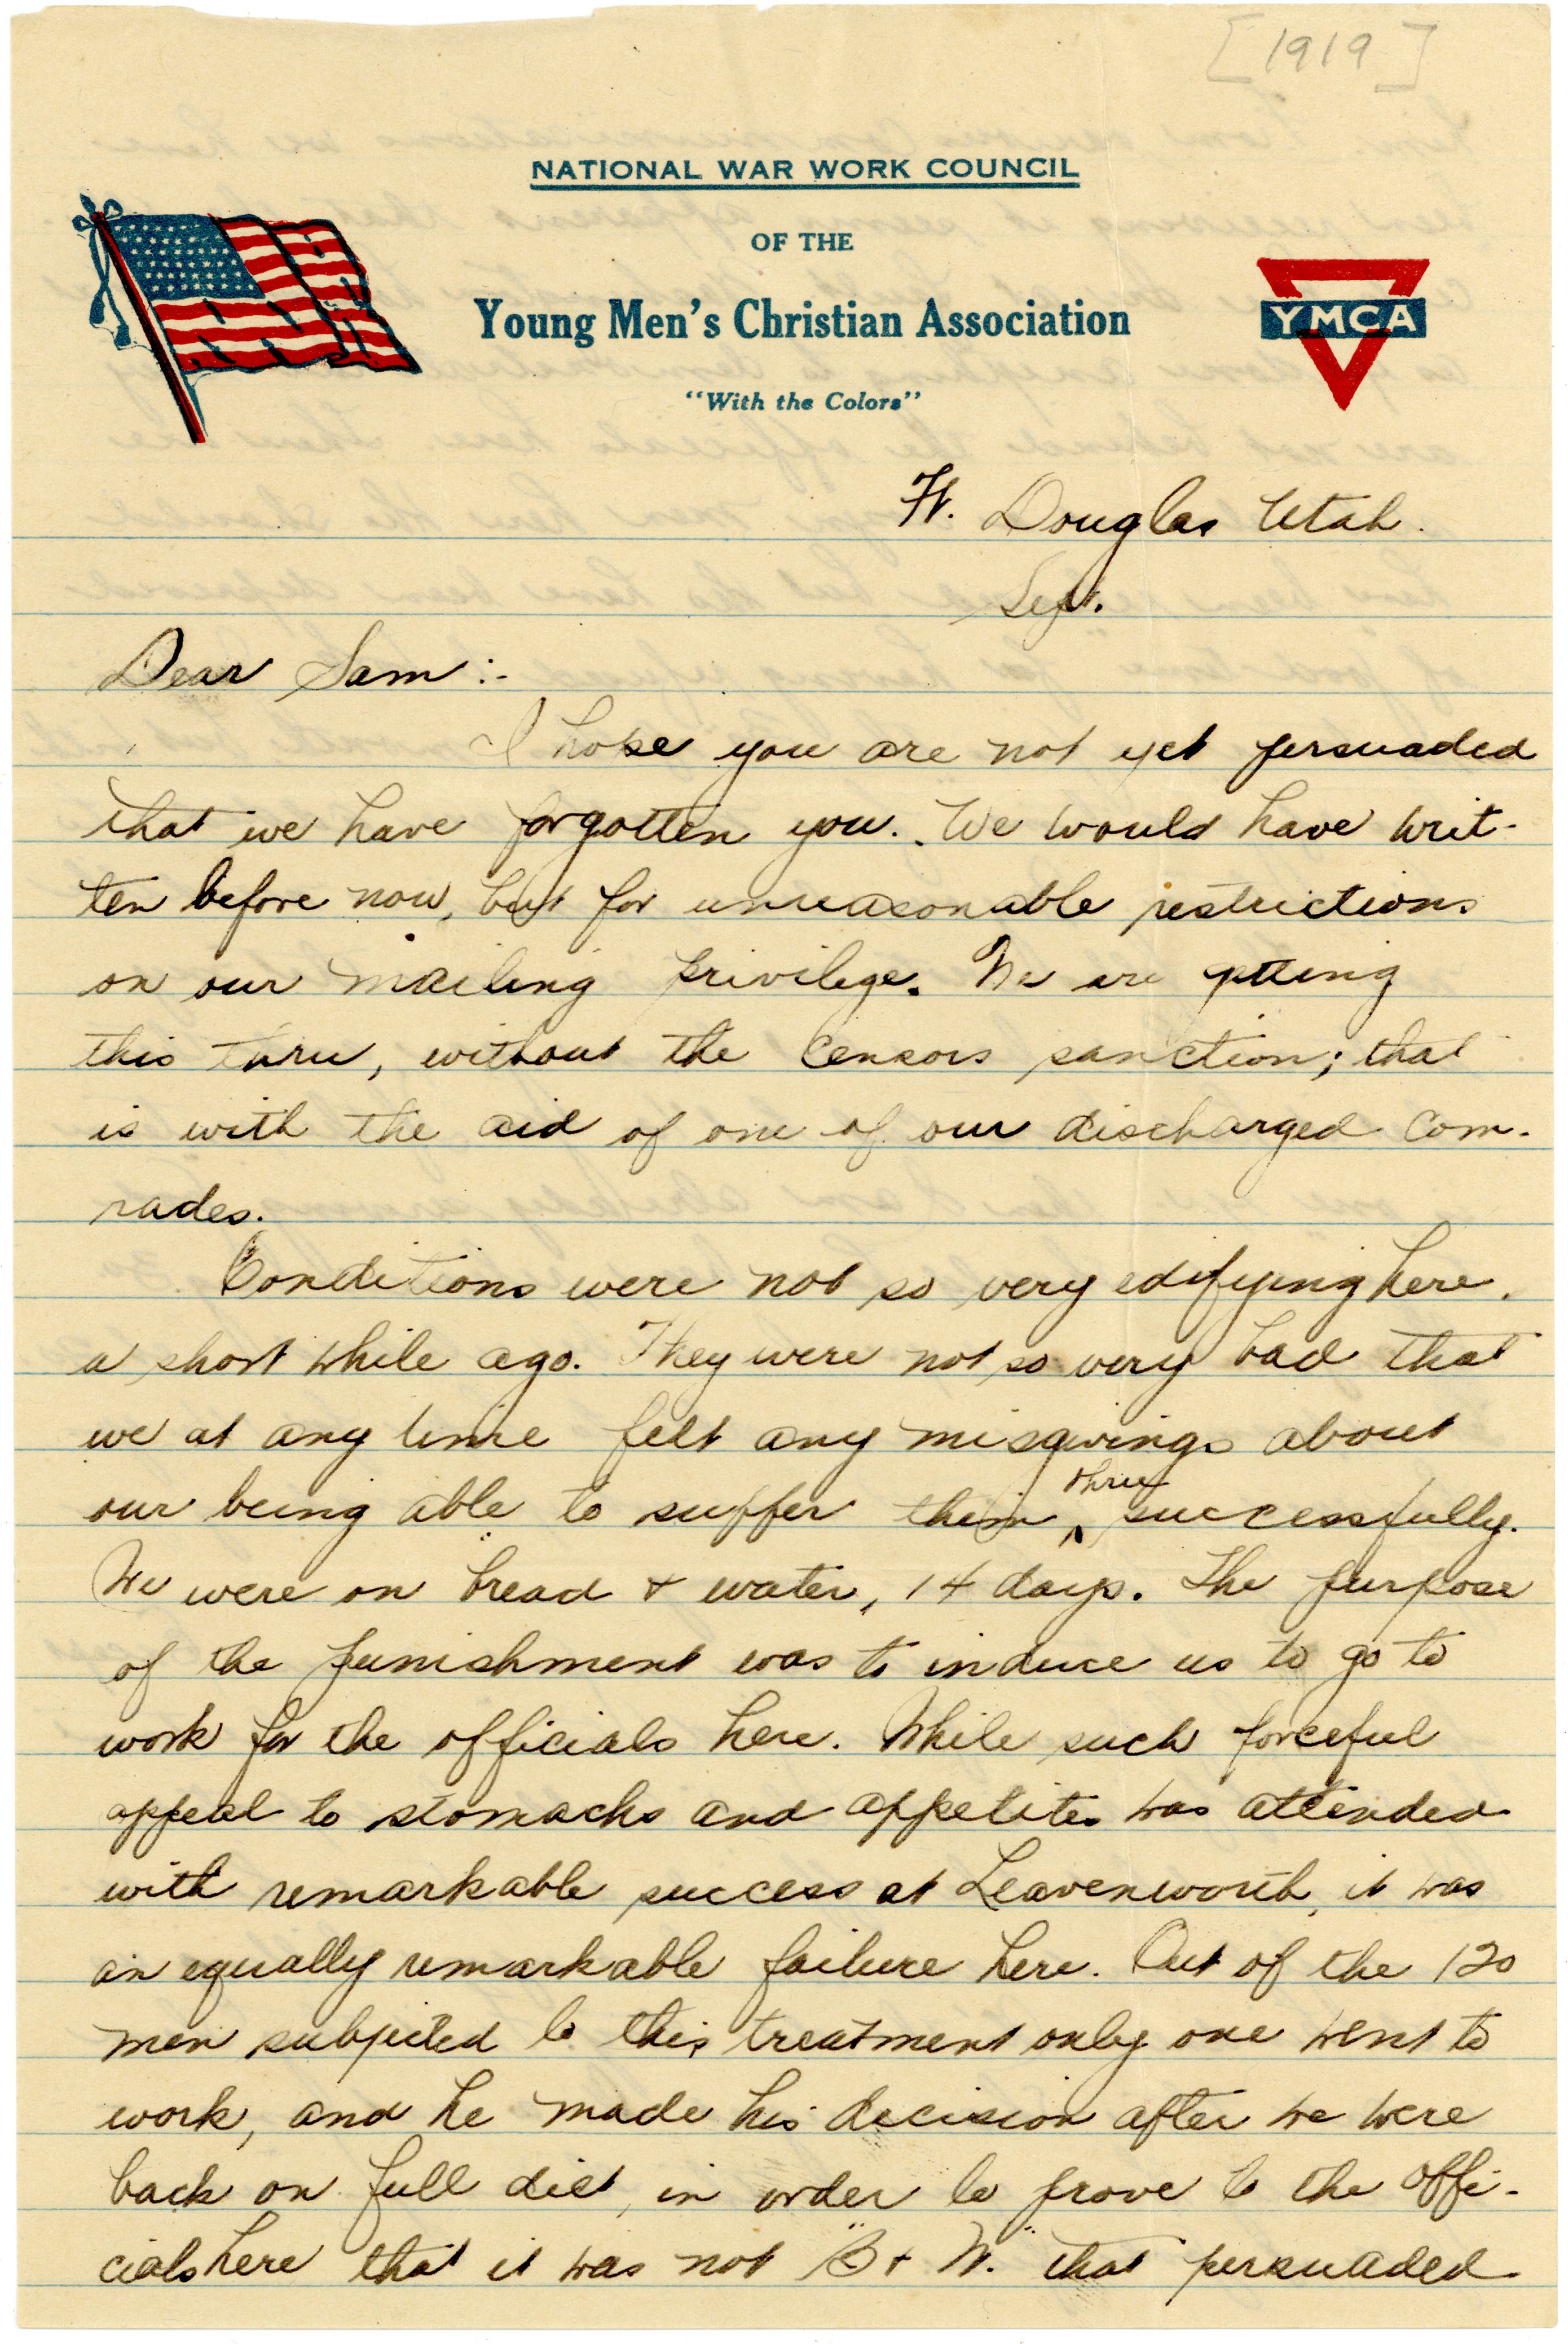 [1919]
NATIONAL WAR WORK COUNCIL
OF THE
Young Men's Christian Association
"With the Colors"
YMCA
Ft. Douglas Utah.
Sept.
Dear Sam :-
I hope you are not yet persuaded
that we have forgotten you. We would have writ-
ten before now, but for unreasonable restrictions
on our mailing privilege. We are getting
this thru, without the censors sanction; that
is with the aid of one of our discharged com-
rades.
Conditions were not so very edifying here.
a short while ago. They were not so very bad that
we at any time felt any misgivings about
our being able to suffer them thru successfully.
We were on bread & water, 14 days. The purpose
of the punishment was to induce us to go to
work for the officials here. While such forceful
appeal to stomachs and appetites was attended
with remarkable success at Leavenworth, it was
an equally remarkable failure here. Out of the 120
men subjected to this treatment only one went to
work, and he made his decision after we were
back on full diet, in order to prove to the offi-
cials here that it was not "B & W." that persuaded